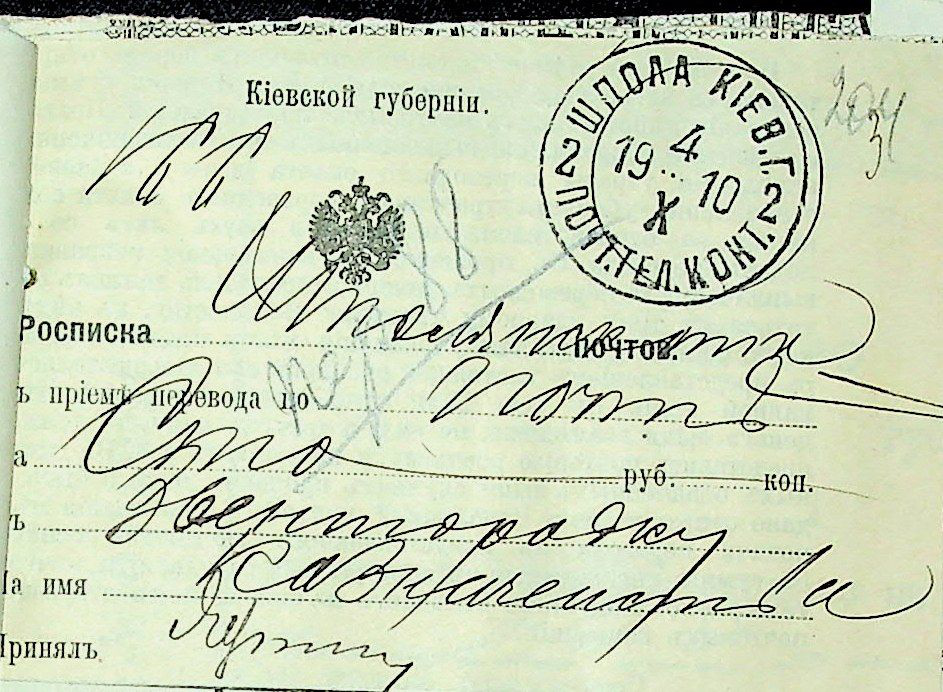 Кіевской губерніи.
ШПОЛА КІЕВ.Г.
2 ПОЧТ.ТЕЛ.КОНТ. 2
4
19 10
X
204
31
Шполянская
Росписка почтов.
ъ пріемѣ перевода по Почт
а Сто руб. коп.
ъ Звенигородку
На имя Казначейства
Принялъ